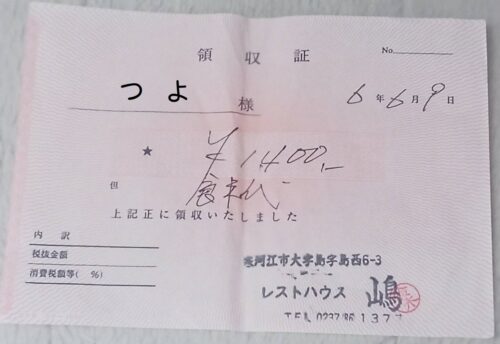 領収証
No.
つよ 様
6年6月9日
★ ¥1400,-
但 食事代
上記正に領収いたしました
内訳
税抜金額
消費税額等( %)
寒河江市大字島字島西6-3
レストハウス 嶋
TEL 0237(86)1377